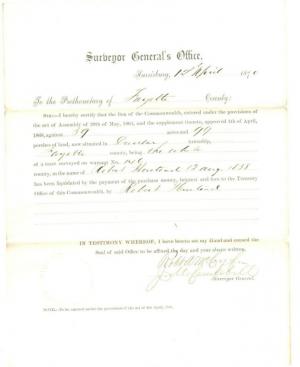 Surveyor General's Office,
Harrisburg, 12 April 187
To the Prothonotary of Fayette County:
SIR:—I hereby certify that the lien of the Commonwealth, entered under the provisions of
the act of Assembly of 20th of May, 1864, and the supplement thereto, approved 4th of April,
1868, against 39 acres and 99
perches of land, now situated in township,
Fayette county, being the whole
of a tract surveyed on warrant No.
county, in the name of Robert 13 Aug 1838
has been liquidated by the payment of the purchase money, interest and fees to the Treasury
Office of this Commonwealth, by Robert
IN TESTIMONY WHEREOF, I have hereto set my Hand and caused the
Seal of said Office to be affixed the day and year above written.
Campbell
Surveyor General.
NOTE.—To be entered under the provisions of the act of 4th April, 1868.